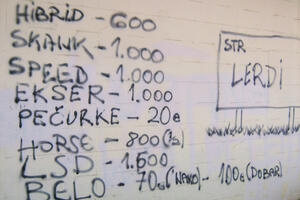 HIBRID - 600
SKANK - 1.000
SPEED - 1.000
EKSER - 1.000
PEČURKE - 20e
HORSE - 800
LSD - 1.500
BELO - 70e - 100e (DOBAR)
STR
LERDI